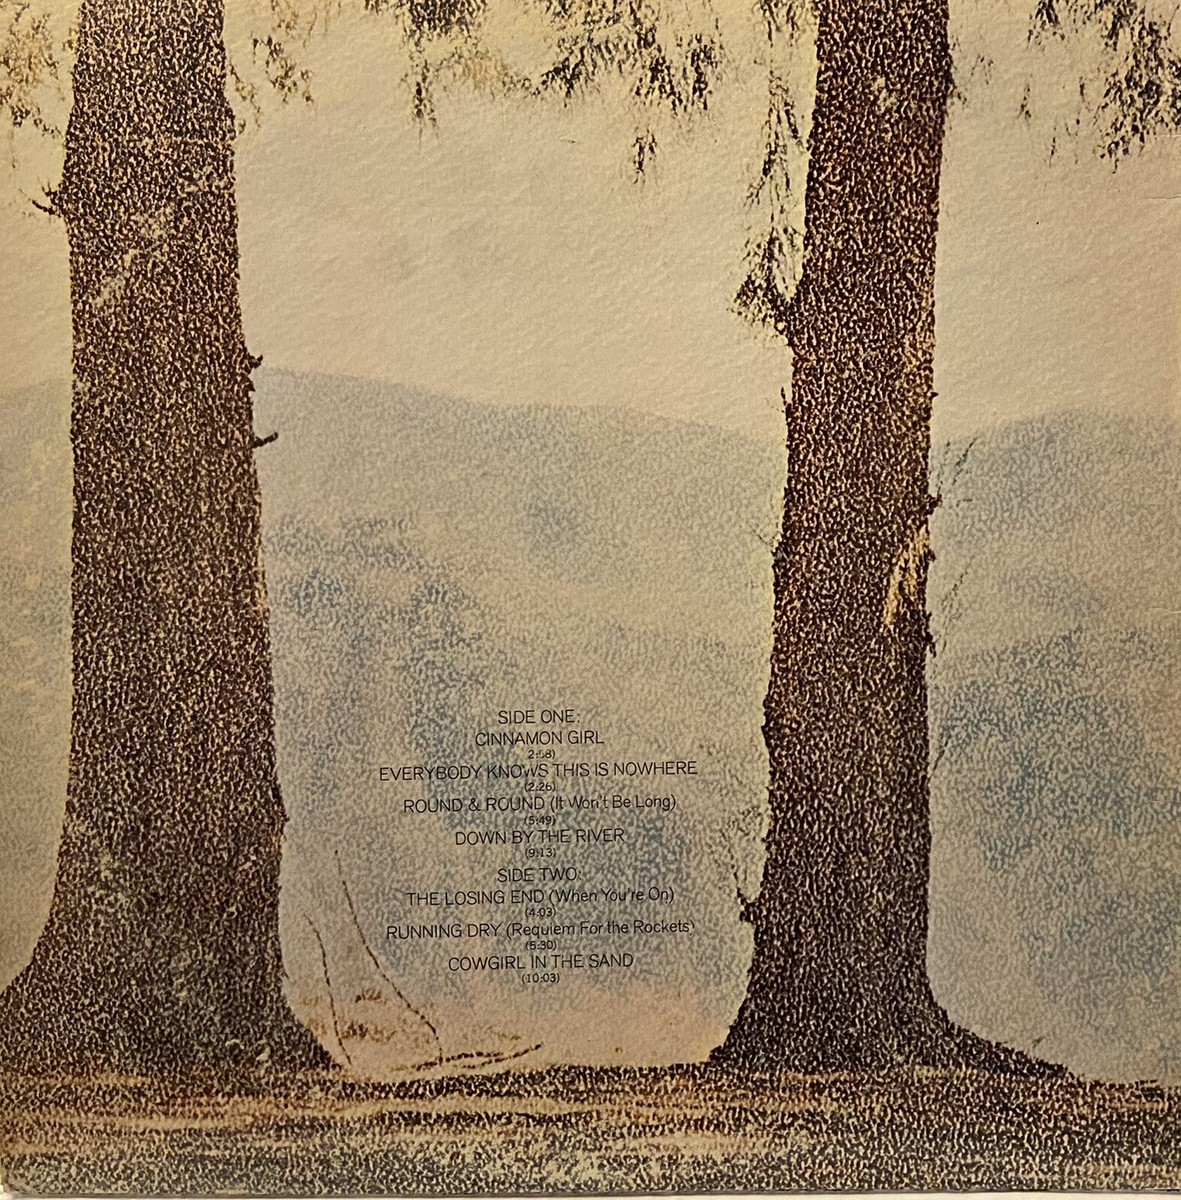 SIDE ONE:
CINNAMON GIRL
2:58)
EVERYBODY KNOWS THIS IS NOWHERE
(2:26)
ROUND & ROUND (It Won't Be Long)
(5:49)
DOWN BY THE RIVER
(9:13)
SIDE TWO:
THE LOSING END (When You're On)
(4:03)
RUNNING DRY (Requiem For the Rockets)
(5:30)
COWGIRL IN THE SAND
(10:03)